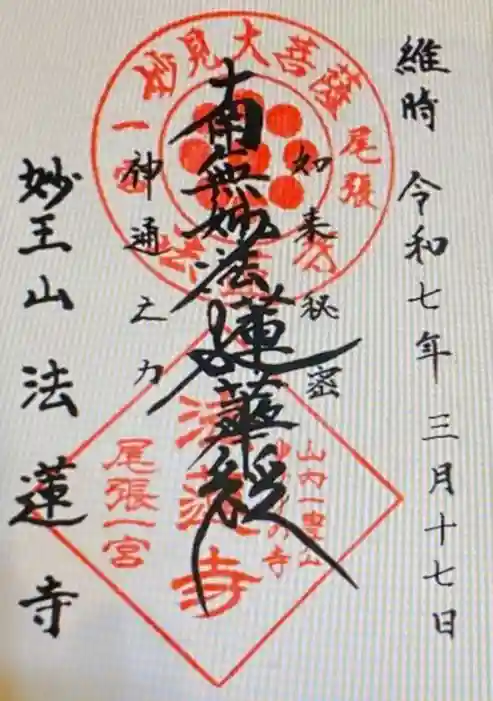 維時 令和七年 三月十七日
如来秘密
南無妙法蓮華経
神通之力
妙王山 法蓮寺
見大菩薩
尾張
一宮
山内一豊公
の寺
法蓮寺
尾張一宮